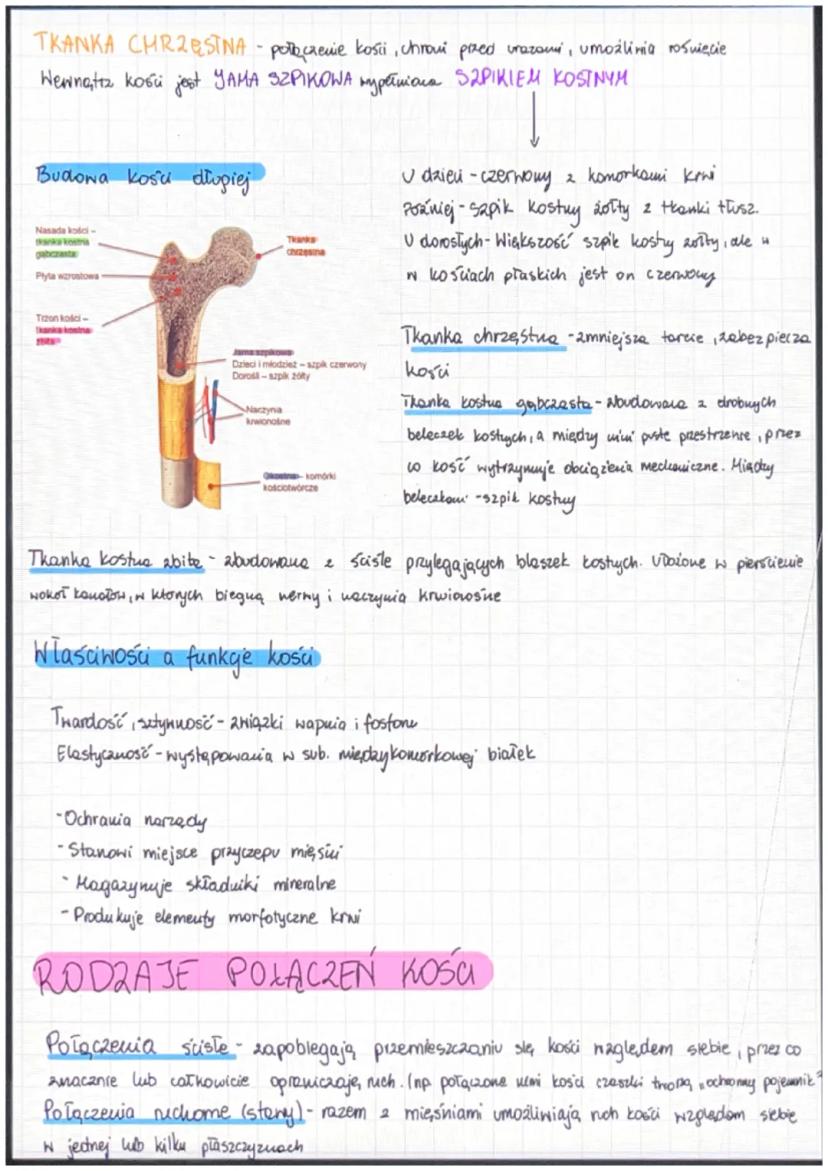 TKANKA CHRZĘSTNA - połączenie kości, chroni przed urazami, umożliwia rośnięcie
Wewnątrz kości jest JAMA SZPIKOWA wypełniona SZPIKIEM KOSTNYM
Budowa kości długiej
Nasada kości –
tkanka kostna
gąbczasta
Płyta wzrostowa
Trzon kości –
tkanka kostna
zbita
Tkanka
chrzęstna
Jama szpikowa
Dzieci i młodzież – szpik czerwony
Dorośli – szpik żółty
Naczynia
krwionośne
Okostna – komórki
kościotwórcze
U dzieci - czerwony z komórkami krwi
Później - szpik kostny żółty z tkanki tłusz.
U dorosłych - Większość szpik kostny żółty, ale
w kościach płaskich jest on czerwony
Tkanka chrzęstna - zmniejsza tarcie, zabezpiecza
kości
Tkanka kostna gąbczasta - zbudowana z drobnych
beleczek kostnych, a między nimi puste przestrzenie, przez
co kość wytrzymuje obciążenia mechaniczne. Między
beleczkami - szpik kostny
Tkanka kostna zbita - zbudowana z ściśle przylegających blaszek kostnych. Ułożone w pierścienie
wokół kanałów, w których biegną nerwy i naczynia krwionośne
Właściwości a funkcje kości
Twardość, sztywność - związki wapnia i fosforu
Elastyczność - występowania w sub. międzykomórkowej białek
- Ochrania narządy
- Stanowi miejsce przyczepu mięśni
- Magazynuje składniki mineralne
- Produkuje elementy morfotyczne krwi
RODZAJE POŁĄCZEŃ KOŚCI
Połączenia ścisłe - zapobiegają przemieszczaniu się kości względem siebie, przez co
znacznie lub całkowicie ograniczają ruch. (np. połączone nimi kości czaszki tworzą „ochronny pojemnik"
Połączenia ruchome (stawy) - razem z mięśniami umożliwiają ruch kości względem siebie
w jednej lub kilku płaszczyznach